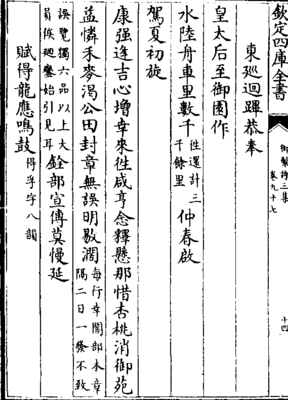 欽定四庫全書
御製詩三集
卷九十七
十四
東廵迴蹕恭奉
皇太后至御園作
水陸舟車里數千徃還計三千餘里仲春啟
駕夏初旋
康强逹吉心增幸來徃咸亨念釋懸那惜杏桃消御苑
益憐禾麥渴公田封章無誤明敭濶每行幸閣部本章隔二日一發不致
誤覽獨六品以上大員候廻鑾始引見耳銓部宣傳莫慢延
賦得龍應鳴鼓得孚字八韻